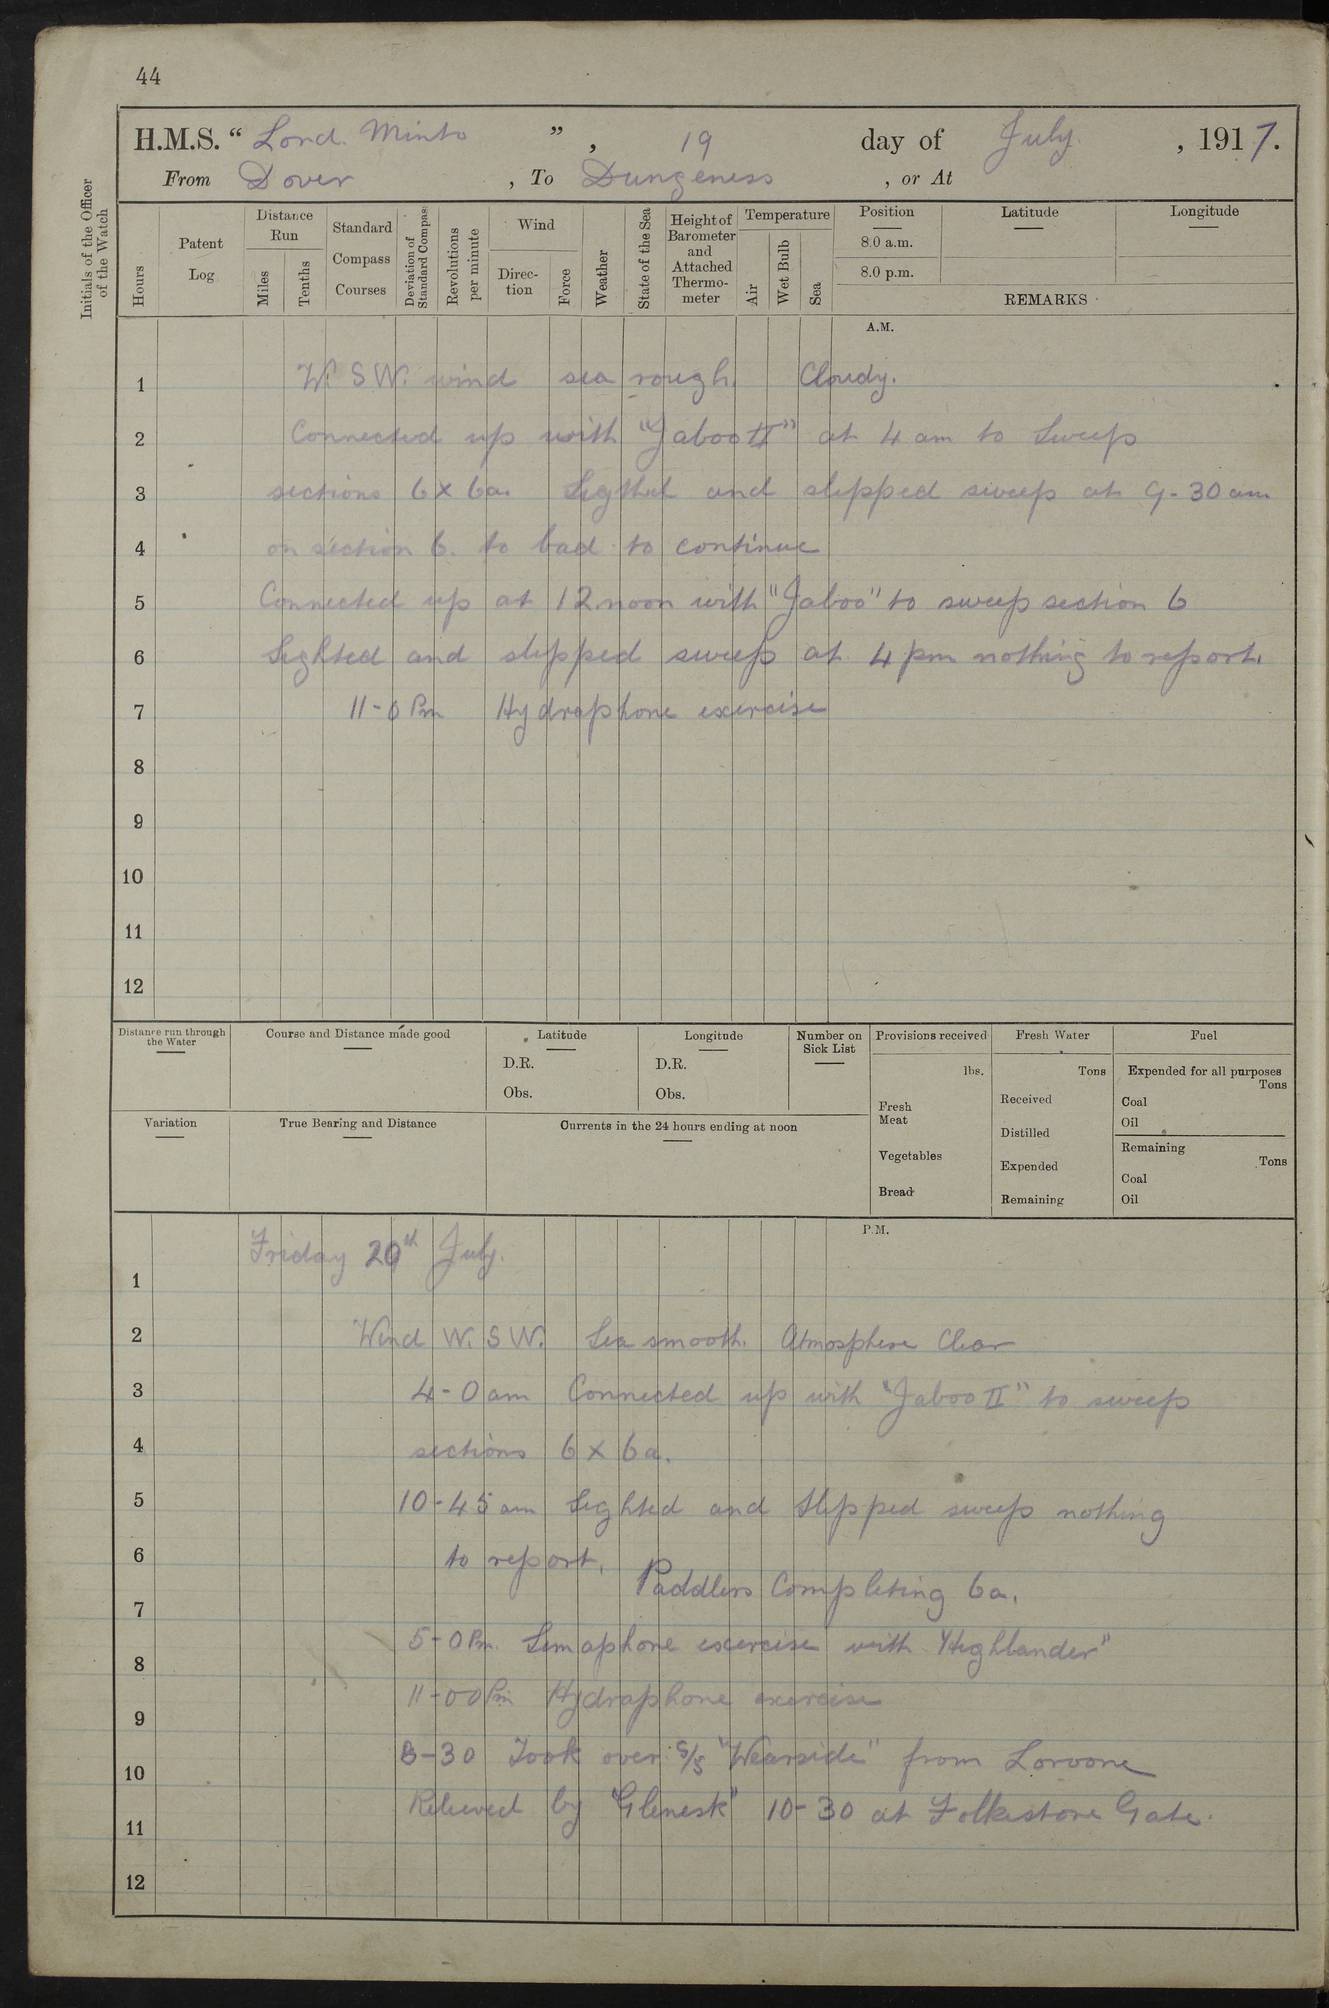 44
H.M.S. “ Lord Minto ” , 19 day of July , 1917.
From Dover , To Dungeness , or At
Initials of the Officer of the Watch
Hours
Patent Log
Distance Run
Miles
Tenths
Standard Compass Courses
Deviation of Standard Compass
Revolutions per minute
Wind
Direc-tion
Force
Weather
State of the Sea
Height of Barometer and Attached Thermo-meter
Temperature
Air
Wet Bulb
Sea
Position
8.0 a.m.
8.0 p.m.
Latitude
Longitude
REMARKS
A.M.
1 W. S W. wind sea rough. Cloudy.
2 Connected up with "Jaboo II" at 4 am to Sweep
3 sections 6 x 6a. Sigthed and slipped sweep at 9-30 am
4 on section 6. to bad to continue
5 Connected up at 12 noon with "Jaboo" to sweep section 6
6 Sighted and slipped sweep at 4 pm nothing to report.
7 11-0 Pm Hydraphone exercise
8
9
10
11
12
Distance run through the Water
Course and Distance made good
Latitude
D.R.
Obs.
Longitude
D.R.
Obs.
Number on Sick List
Provisions received
lbs.
Fresh Meat
Vegetables
Bread
Fresh Water
Tons
Received
Distilled
Expended
Remaining
Fuel
Expended for all purposes
Tons
Coal
Oil
Remaining
Tons
Coal
Oil
Variation
True Bearing and Distance
Currents in the 24 hours ending at noon
P.M.
Friday 20th July.
1
2 Wind W. S W. Sea smooth. Atmosphere Clear
3 4-0 am Connected up with "Jaboo II" to sweep
4 sections 6 x 6a.
5 10-45 am Sighted and Slipped sweep nothing
6 to report.
Paddlers Completing 6a.
7
8 5-0 Pm. Semaphore exercise with "Highlander"
9 11-00 Pm Hydraphone exercise
10 8-30 Took over S/S "Wearside" from Loroone
11 Relieved by "Glenesk" 10-30 at Folkestone Gate.
12